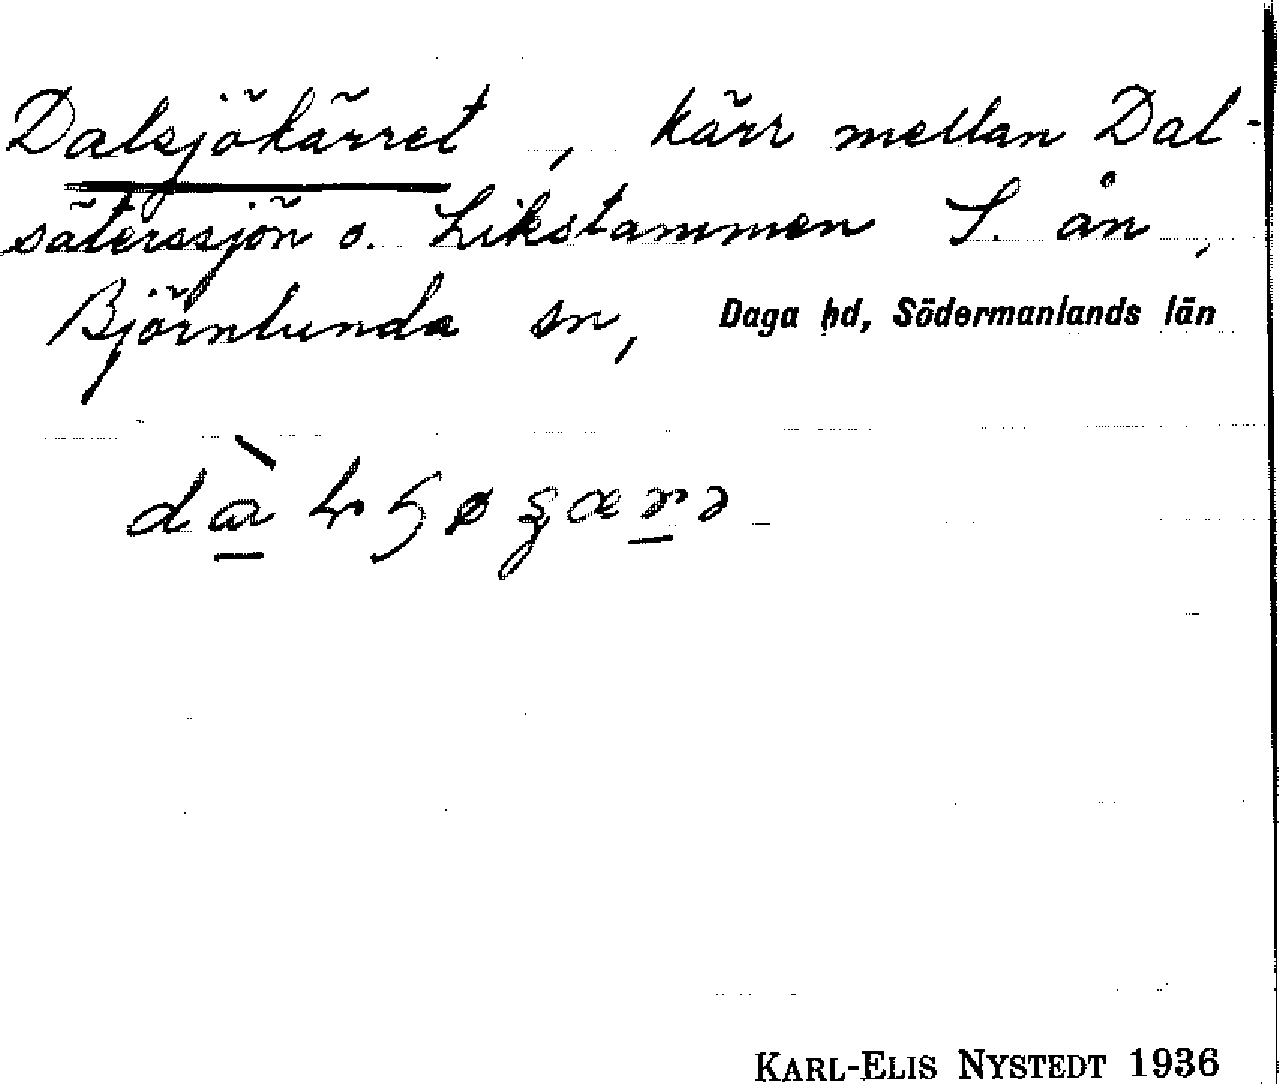 Dalsjökärret, kärr mellan Dal-
säterssjön o. Likstammen S. ån,
Björnlunda sn, Daga hd, Södermanlands län
KARL-ELIS NYSTEDT 1936